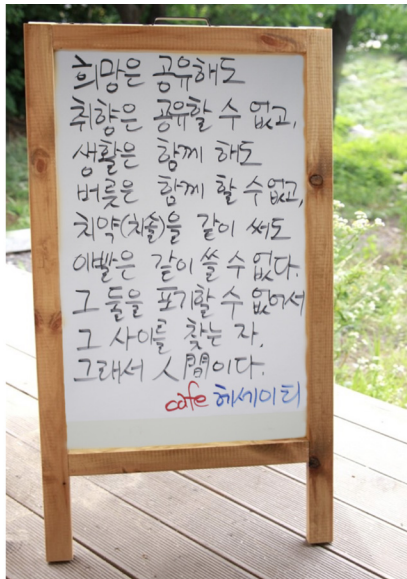 희망은 공유해도
취향은 공유할 수 없고,
생활은 함께 해도
버릇은 함께 할 수 없고,
치약(치솔)을 같이 써도
이빨은 같이 쓸 수 없다.
그 둘을 포기할 수 없어서
그 사이를 찾는 자.
그래서 人間이다.
cafe 헤세이티